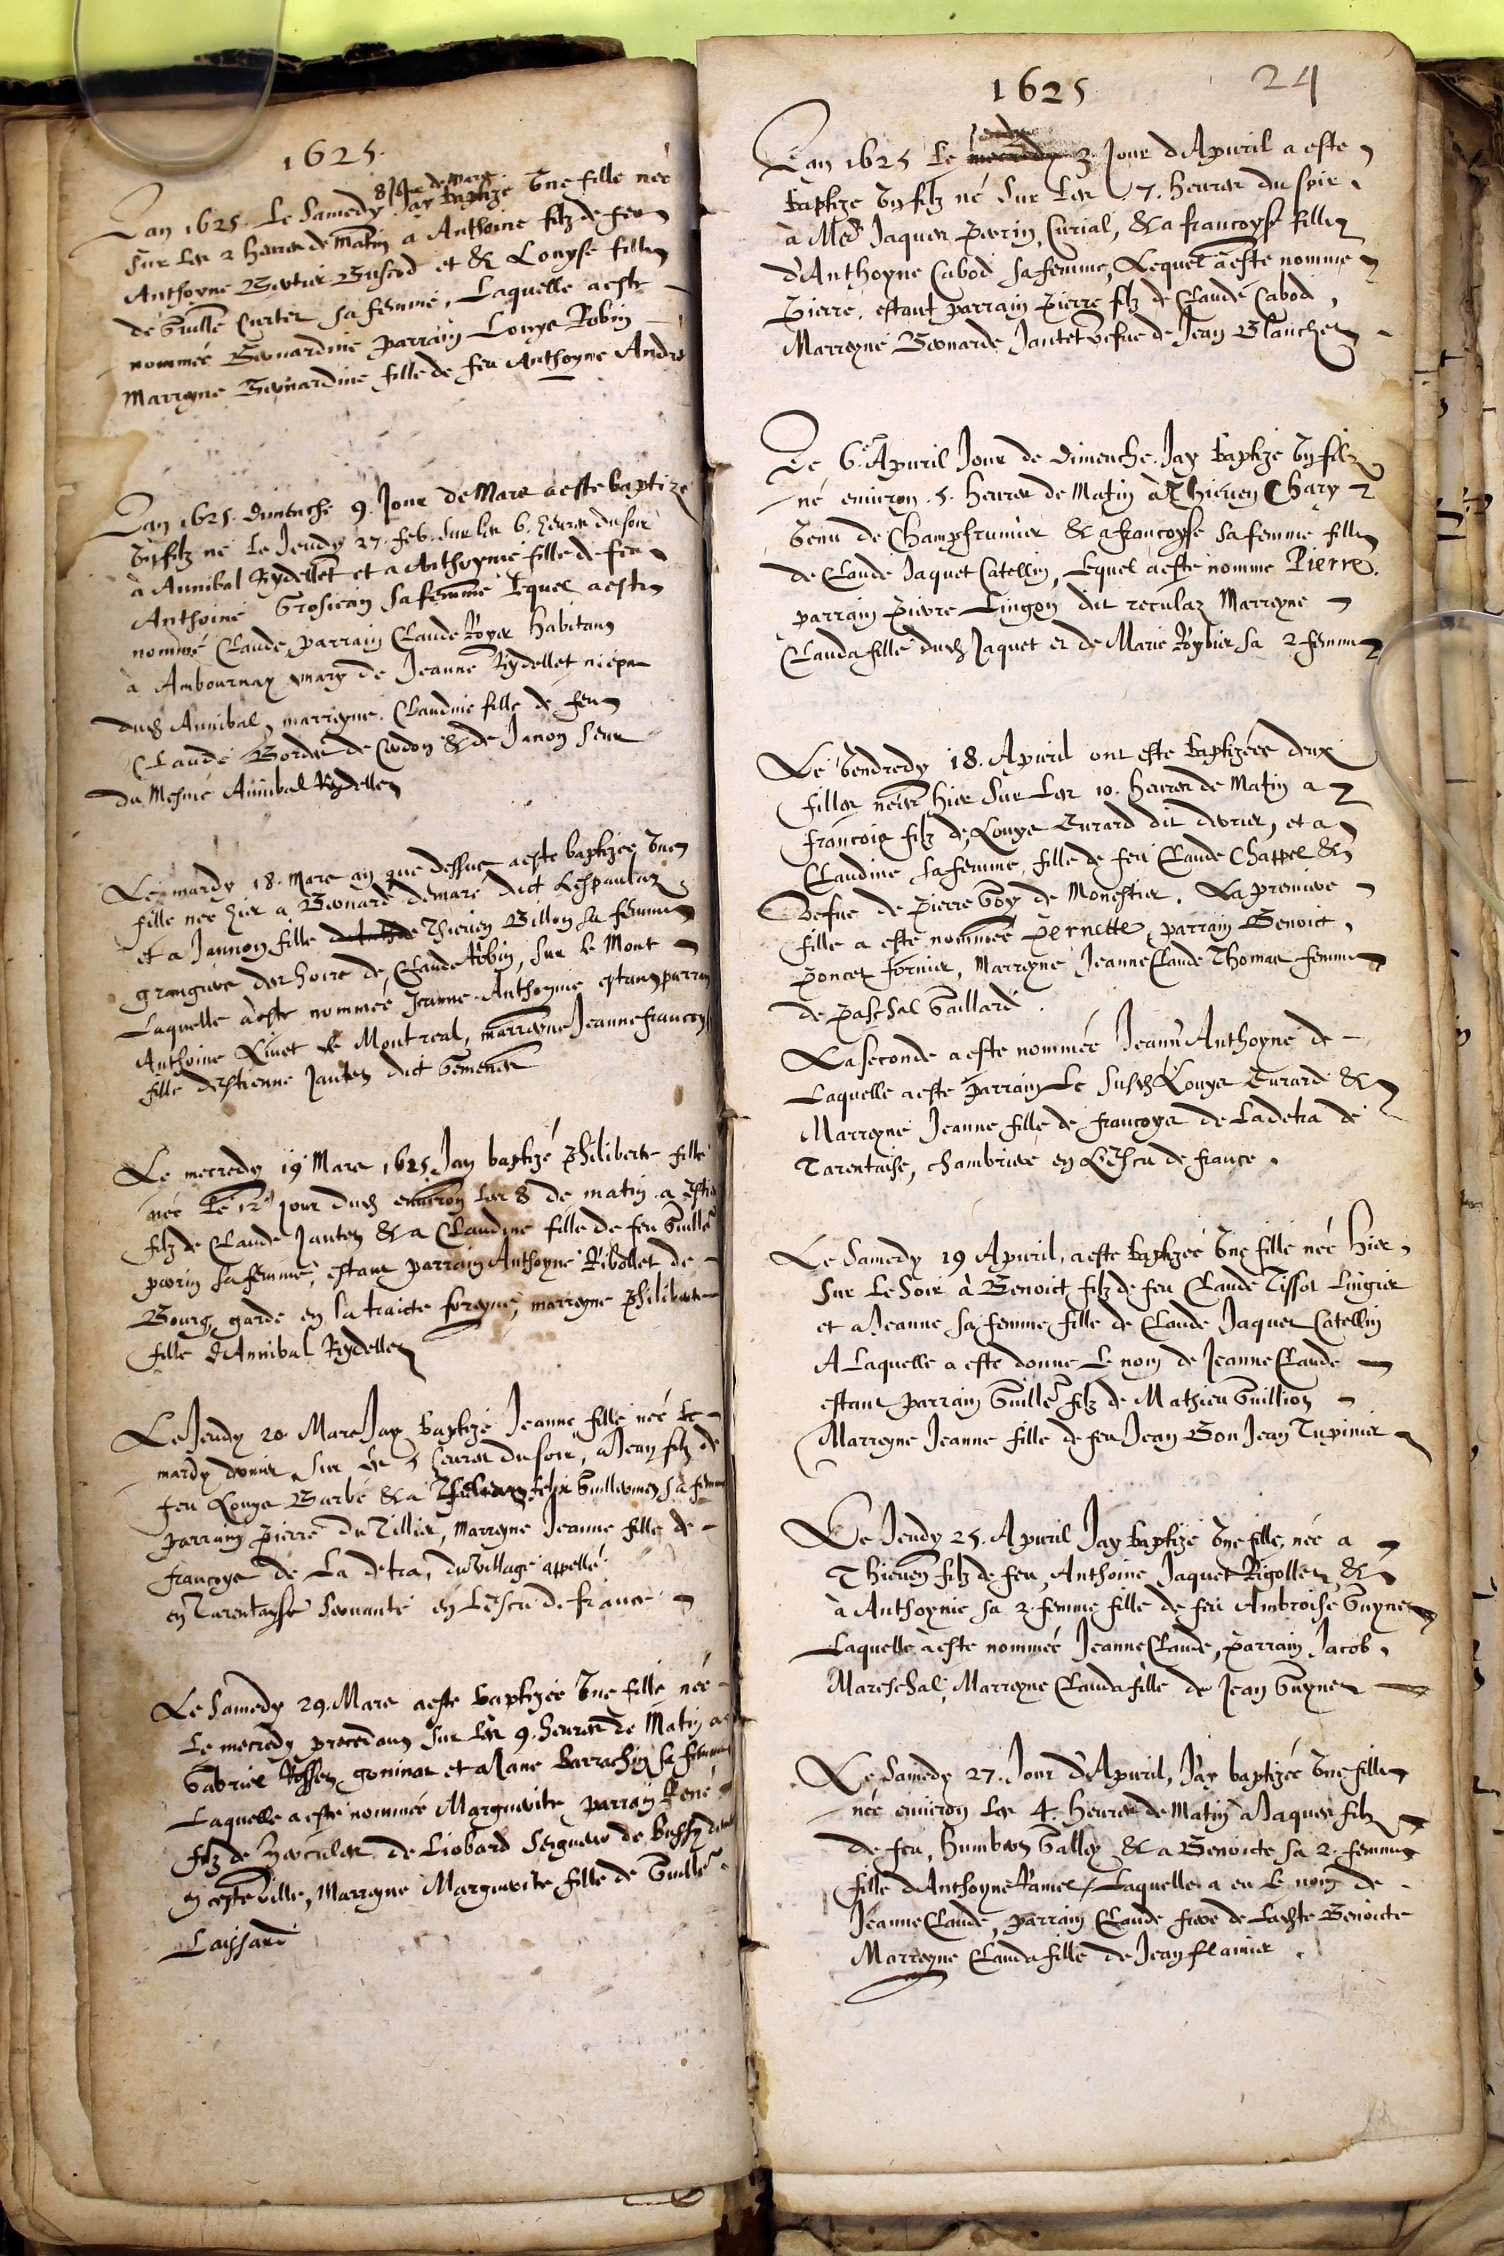 1625.
Lan 1625. Le Samedy 8 Jour de Mars Jay baptize Une fille née
sur les 2 heures de matin a Anthoine filz de feu
Anthoyne Bertier Buscod et de Louyse fille
de Guille Curtet sa femme, Laquelle a este
nommée Bernardine parrain Louys Robin
Marreyne Bernardine fille de feu Anthoyne André
Lan 1625. Dimenche 9. Jour de Mars a este baptize
Un filz né le Jeudy 27. feb. sur les 6. heures du soir
à Annibal Rydellet et a Anthoyne fille de feu
Anthoine Grosjean sa femme Lequel a este
nommé Claude, parrain Claude Royer habitant
à Ambournay mary de Jeanne Rydellet niepce
dud Annibal, marreyne. Claudine fille de feu
Claude Bordet de Cerdon & de Janon seur
du Mesme Annibal Rydellet
Le mardy 18. Mars an que dessus a este baptizée Une
fille née hier a Bernard demare dict Lespaulaz
et a Jannon fille Thieven Billon sa femme
grangiere des hoirs de Claude Robin, sur le Mont
Laquelle a este nommée Jeanne-Anthoyne estant parrain
Anthoine Livet de Montreal, marreyne Jeanne francoyse
fille destienne Jantet dict
Le mecredy 19 Mars 1625 Jay baptizé Philiberte fille
née le 12e jour dud environ les 8 de matin a
filz de Claude Jantet & a Claudine fille de feu Guille
perrin sa femme, estant parrain Anthoyne Ribollet de
Bourg, garde en la traicte foreyne, marreyne Philiberte
fille d'Annibal Rydellet
Le Jeudy 20. Mars Jay baptizé Jeanne fille née le
mardy dernier sur les 5 heures du soir, a Jean filz de
feu Louys Barbé & a Guillermet sa femme
parrain Pierre Du Tillier, Marreyne Jeanne fille de
francoys de La detra, du village appellé
en Tarentayse servante en Lescu de france
Le Samedy 29. Mars a este baptizée Une fille née
Le mecredy precedant sur les 9. heures de Matin a
Gabriel Rossen goninat et a Jane Barrachin sa femme
Laquelle a este nommée Marguerite, parrain René
filz de Hercules de Liobard Seigneur de
en ceste ville, Marreyne Marguerite fille de Guille
Laissard
1625 24
Lan 1625 Le Jeudy 3. Jour d'Apuril a este
baptize Un filz né sur les 7. heures du soir
à Mre Jaques Perrin, Curial, & a francoyse fille
d'Anthoyne Cabod sa femme, Lequel a este nomme
Pierre, estant parrain Pierre filz de Claude Cabod,
Marreyne Bernarde Jantet vefue de Jean Blanchet
Le 6.e Apuril Jour de dimenche Jay baptizé Un filz
né environ 5. heures de Matin à Thieven Chary
Venu de Champfrumier & a francoyse sa femme fille
de Claude Jaquet Catellin, Lequel a este nomme Pierre.
parrain Pierre Lingon dit reculaz Marreyne
Clauda fille dud Jaquet et de Marie Roybier sa 2 femme
Le Vendredy 18. Apuril ont este baptizées deux
filles nées hier sur les 10. heures de Matin a
francois filz de Louys Eurard dit devrier, et a
Claudine sa femme, fille de feu Claude Chappel &
vefue de Pierre Goy de Monestier. La premiere
fille a este nommée Pernette, parrain Benoict
Poncet fornier, Marreyne Jeanne Claude Thomas femme
de Paschal Gaillard.
La seconde a este nommée Jeann'Anthoyne de
Laquelle a este Parrain Le susd Louys Eurard &
Marreyne Jeanne fille de francoys de La detra de
Tarentaise, chambriere en L'Escu de france.
Le Samedy 19 Apuril, a este baptizée Une fille née hier
sur Le soir à Benoict filz de feu Claude Tissot Lingier
et a Jeanne sa femme fille de Claude Jaquet Catellin
A Laquelle a este donne Le nom de Jeanne Claude
estant parrain Guille filz de Mathieu Guillion
Marreyne Jeanne fille de feu Jean Bon Jean Tupinier
Le Jeudy 25. Apuril Jay baptizé Une fille, née a
Thieven filz de feu Anthoine Jaquet Rigollet, &
à Anthoynie sa 2. femme fille de feu Ambroise Guynet
Laquelle a este nommée Jeanne Claude, parrain Jacob
Mareschal, Marreyne Clauda fille de Jean Guynet
Le Samedy 27. Jour d'Apuril, J'ay baptizée Une fille
née environ les 4. heures de Matin a Jaques filz
de feu, Humbert Galley & a Benoicte sa 2. femme
fille d'Anthoyne Ramel, Laquelle a eu Le nom de
Jeanne Claude, parrain Claude frere de Ladte Benoicte
Marreyne Clauda fille de Jean flamier.